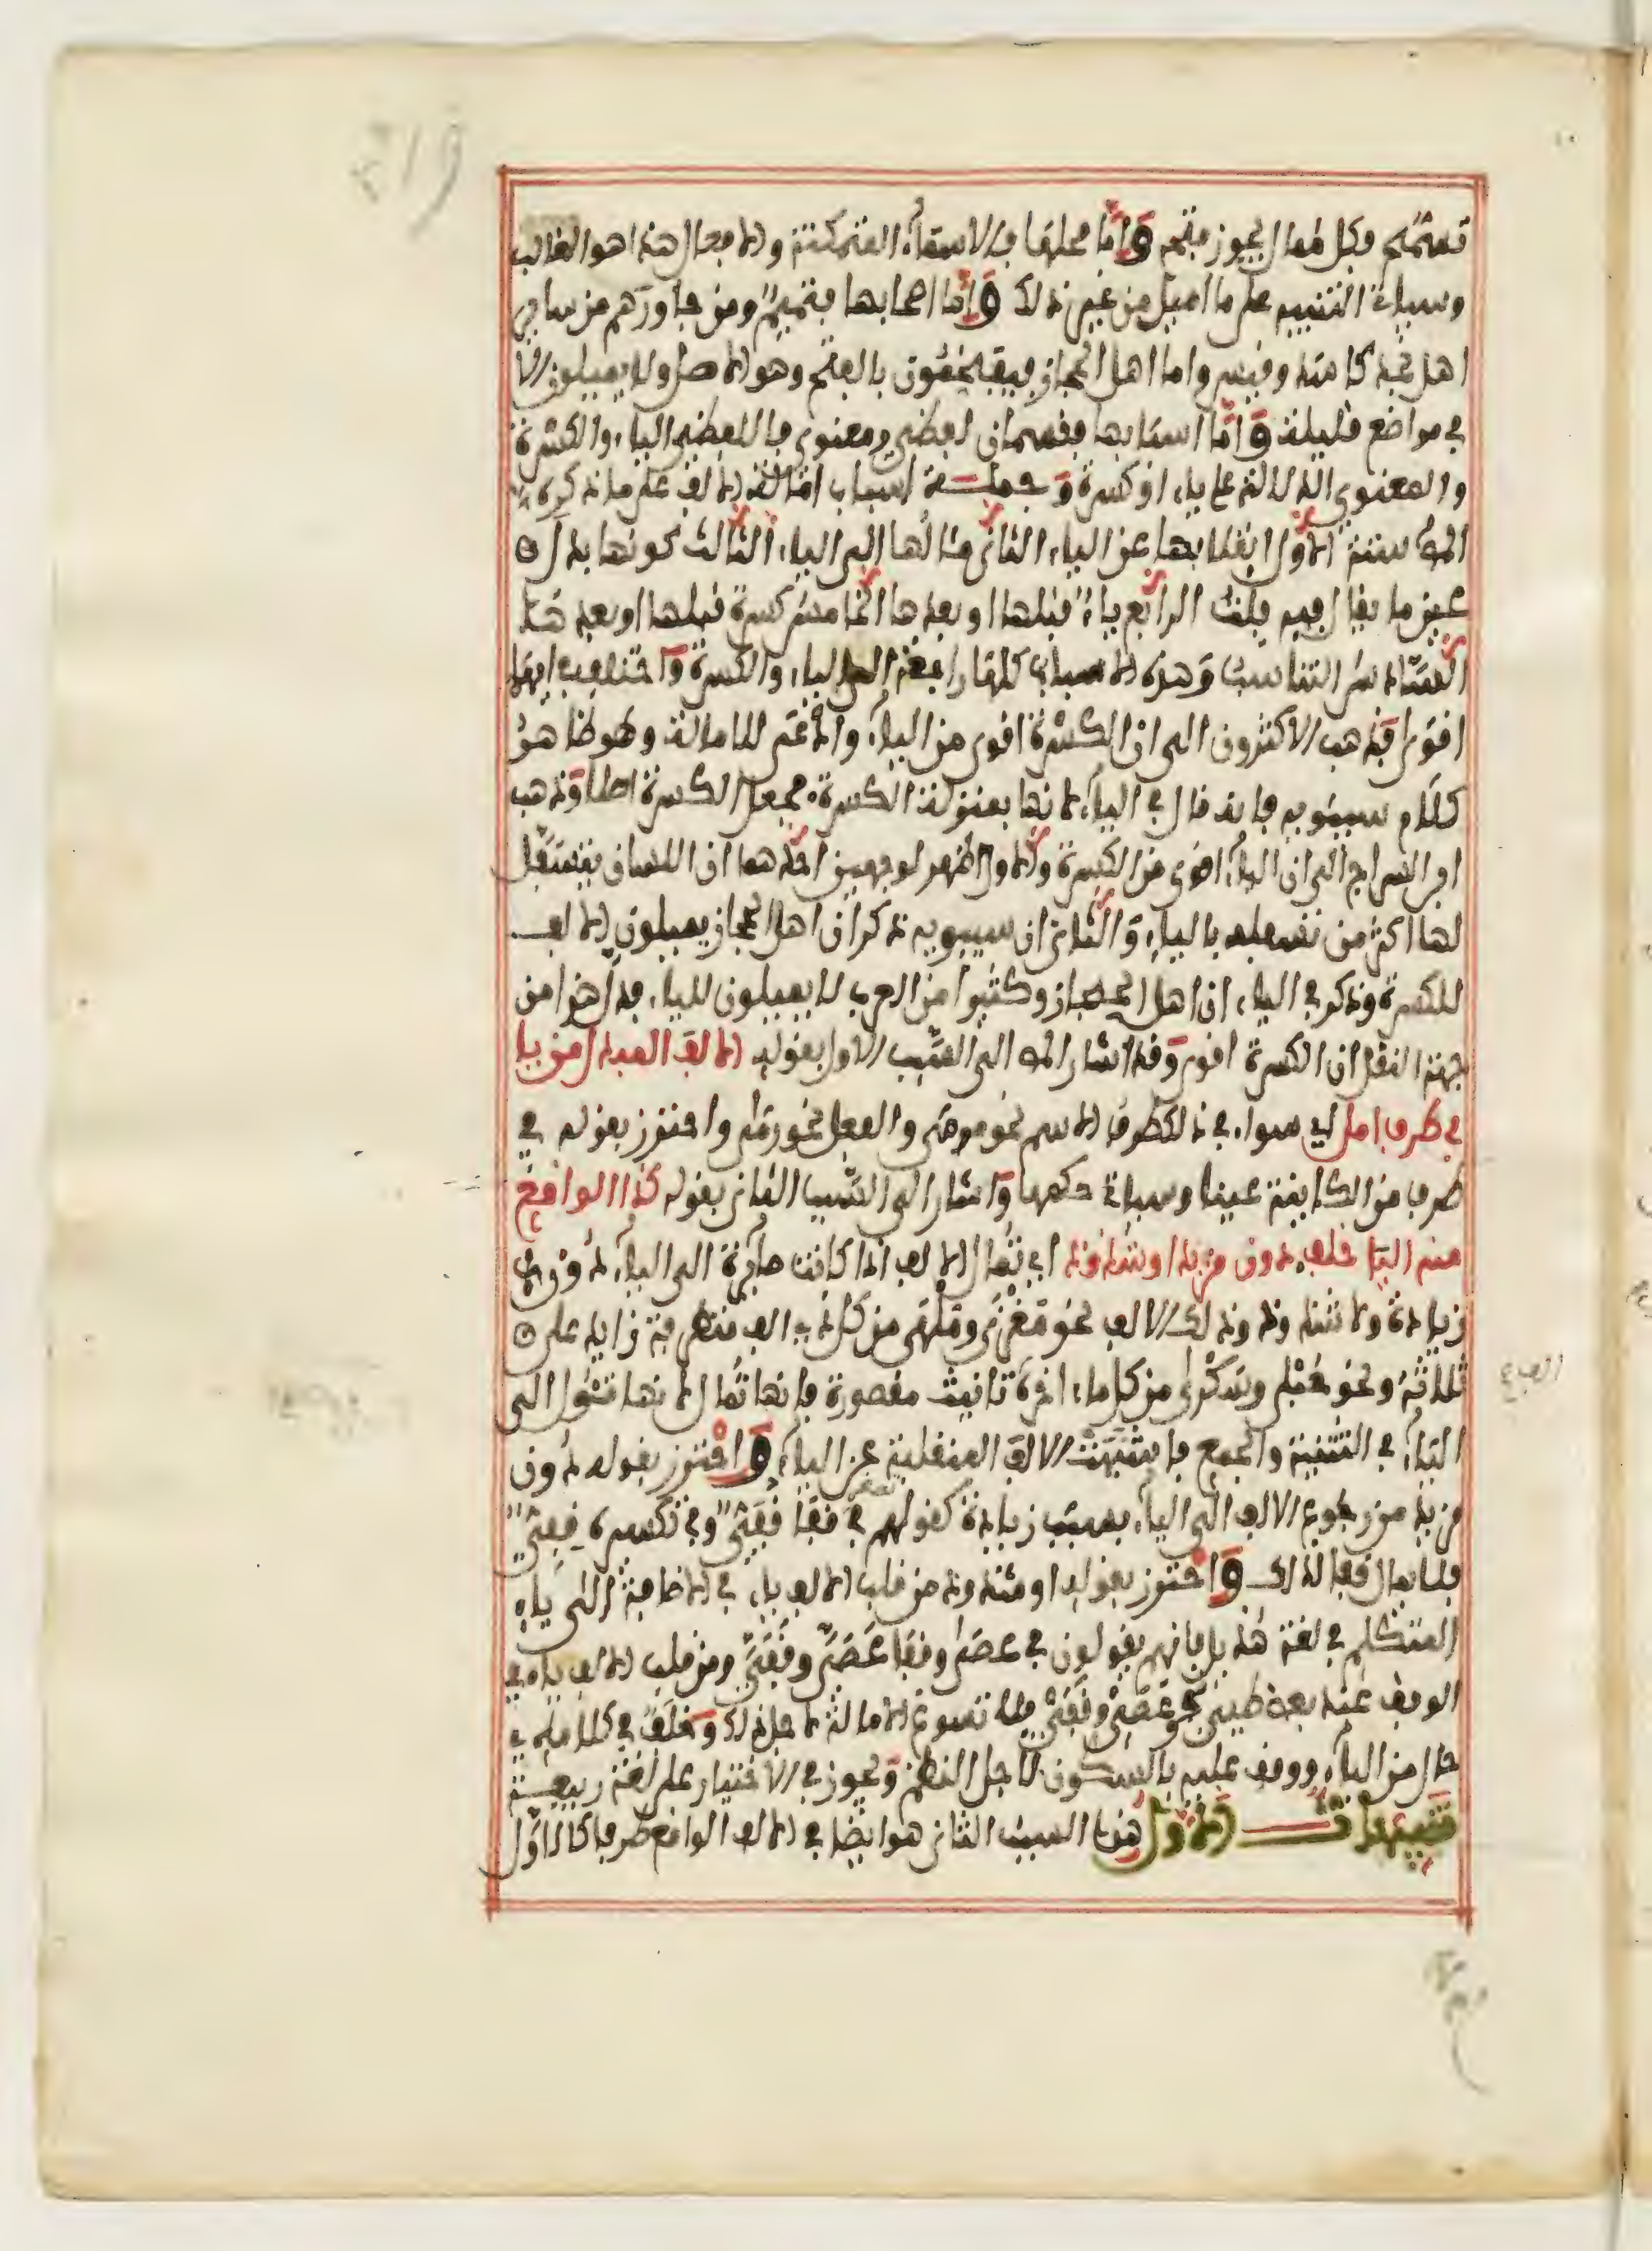 تستمح فكل ممال يجوز فتحه وأما محلها فالاسماء المتمكنة والافعال هذا هو الغالب
وسياتي التنبيه على ما اميل من غير ذلك وأما اصحابها فتميم ومن جاورهم من سائر
اهل نجد كاسد وقيس واما اهل الحجاز فيفخمون بالفتح وهو الاصل ولا يميلون الا
في مواضع قليلة وأما اسبابها فقسمان لفظي ومعنوي فاللفظي الياء والكسرة
والمعنوي الدلالة على ياء او كسرة وجملة اسباب امالة الالف على ما ذكره
المص ستة الاول انقلابها عن الياء الثاني مئالها الى الياء الثالث كونها بدل
عين ما يقال فيه فلت الرابع ياء قبلها او بعدها الخامس كسرة قبلها او بعدها
السادس التناسب وهذه الاسباب كلها راجعة الى الياء والكسرة واختلف ايهما
اقوى فذهب الاكثرون الى ان الكسرة اقوى من الياء وادعى للامالة وهو ظاهر
كلام سيبويه فانه قال في الياء لانها بمنزلة الكسرة فجعل الكسرة اصلا وذهب
ابن السراج الى ان الياء اقوى من الكسرة والاول اظهر لوجهين احدهما ان اللسان يتسفل
لها اكثر من تسفله بالياء والثاني ان سيبويه ذكر ان اهل الحجاز يميلون الالف
للكسرة وذكر في الياء ان اهل الحجاز وكثيرا من العرب لا يميلون للياء فدل هذا من
جهة النقل ان الكسرة اقوى وقد اشار المص الى السبب الاول بقوله الالف المبدل من يا
في طرف امل اي سواء في ذلك طرف الاسم نحو مرمى والفعل نحو رمى واحترز بقوله في
طرف من الكاينة عينا وسياتي حكمها واشار الى السبب الثاني بقوله كذا الواقع
منه اليا خلف دون مزيد او شذوذ اي تمال الالف اذا كانت صائرة الى الياء دون
زيادة ولا شذوذ وذلك الالف نحو مغزى وملهى من كل ذي الف متطرفة زايد على
ثلاثة ونحو حبلى وسكرى من كل ما اخره تانيث مقصورة فانها تمال لانها تئول الى
الياء في التثنية والجمع فاشبهت الالف المنقلبة عن الياء واحترز بقوله دون
مزيد من رجوع الالف الى الياء بسبب زيادة كقولهم في تصغير قفا قفي وفي تكسيره قفي
فلا يمال قفا لذلك واحترز بقوله او شذوذ من قلب الالف ياء في الاضافة الى ياء
المتكلم في لغة هذيل فانهم يقولون في عصى وقفا عصي وقفي ومن قلب الالف ياء في
الوقف عند بعض طيئ نحو عصي وقفي فلا تسوغ الامالة لاجل ذلك وخلف في كلامه
حال من الياء ووقف عليه بالسكون لاجل النظم ويجوز في الاختيار على لغة ربيعة
تنبيهات الاول هذا السبب الثاني هو ايضا في الالف الواقع طرفا كالاول